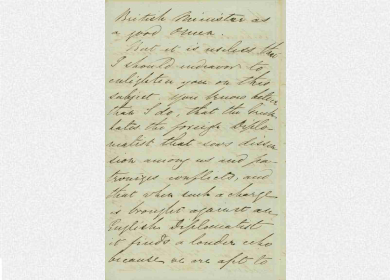 British Minister as
a good Omen.
But it is useless that
I should endeavor to
enlighten you on this
subject, you know better
than I do, that the
hates the foreign Diplo-
matist that sows dissen-
sion among us and pa-
tronizes conflicts, and
that when such a charge
is brought against an
English Diplomatist
it finds a louder echo
because we are apt to